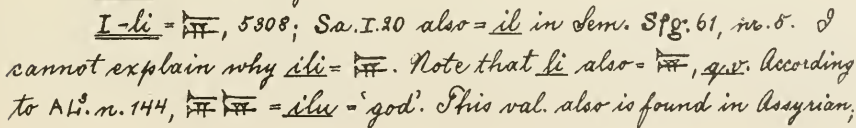 I-li = 𒉌, 5308; Sa. I. 20 also = il in Sem. Spg. 61, nr. 5. I
cannot explain why ili = 𒉌. Note that li also = 𒉌, q.v. According
to AL³. n. 144, 𒉌 𒉌 = ilu = 'god'. This val. also is found in Assyrian;